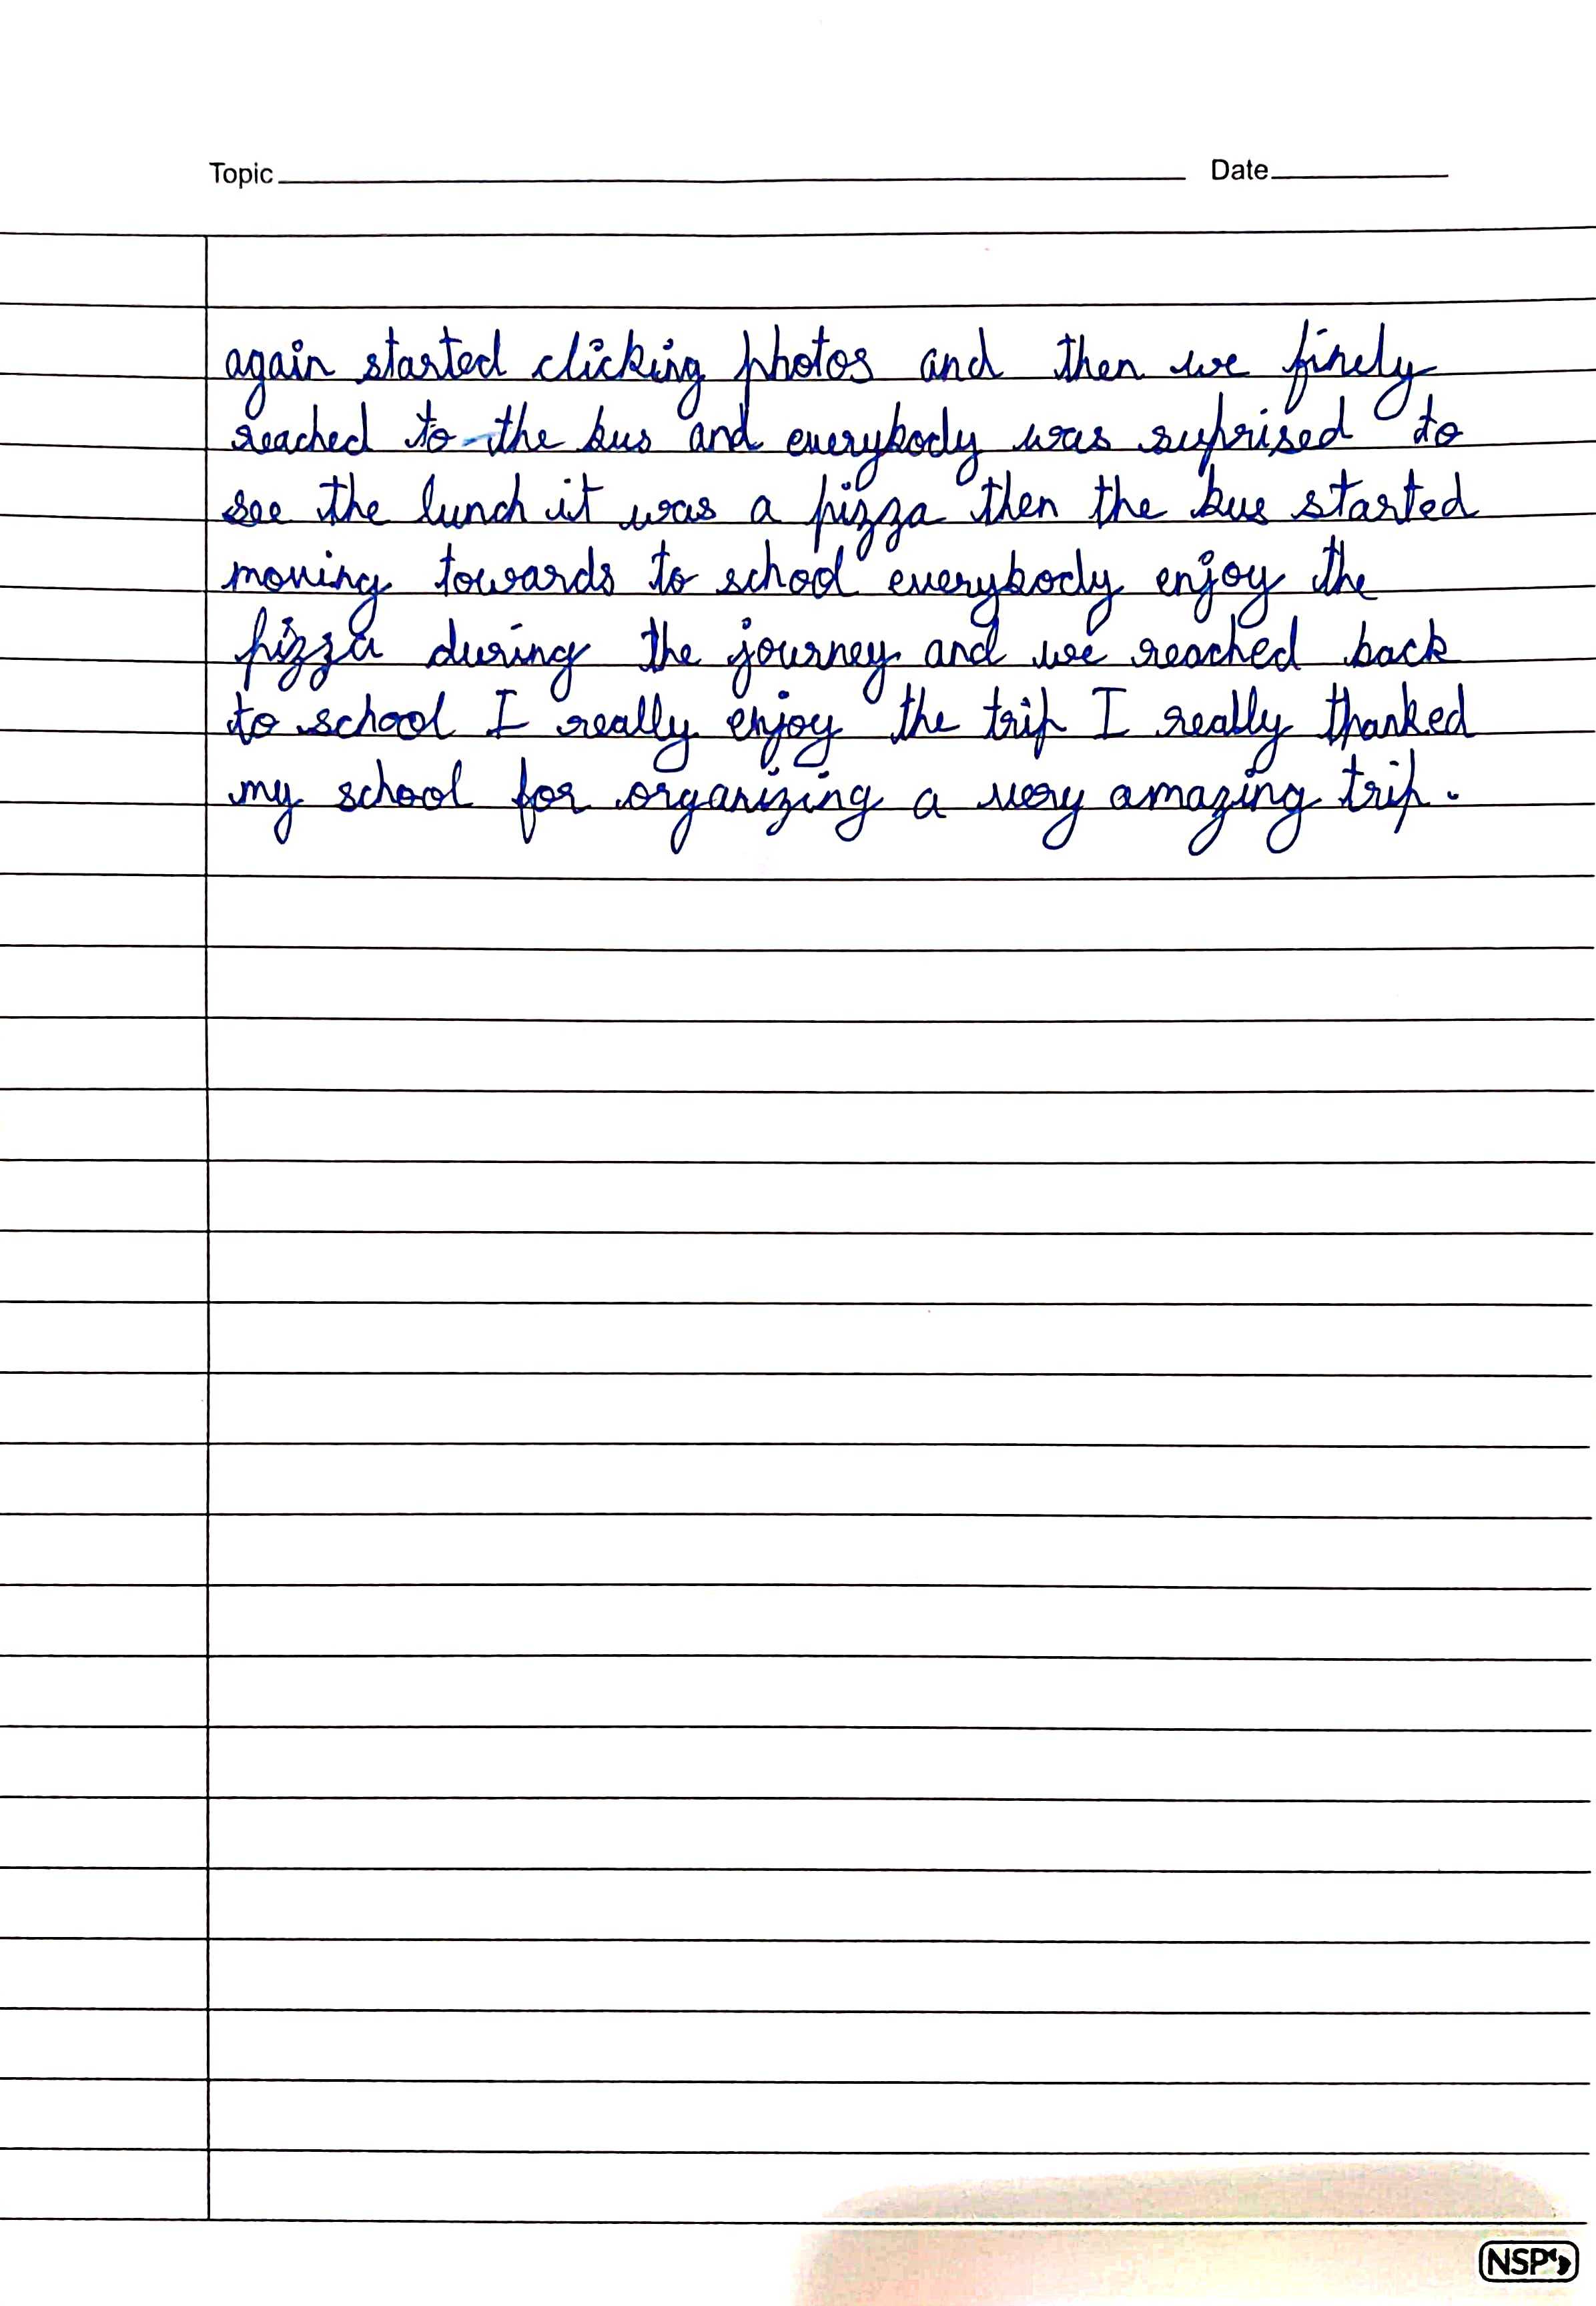 Topic Date
again started clicking photos and then we finely
reached to the bus and everybody was suprised to
see the lunch it was a pizza then the bus started
moving towards to school everybody enjoy the
pizza during the journey and we reached back
to school I really enjoy the trip I really thanked
my school for organizing a very amazing trip.
NSP